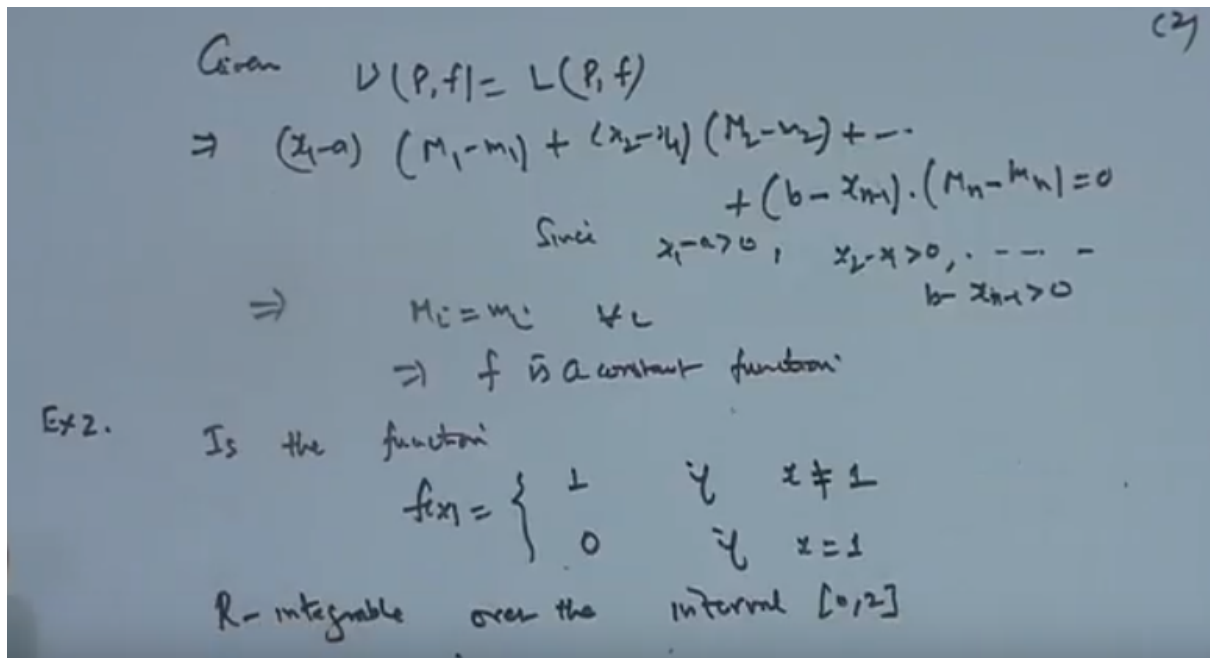 (2)
Given U(P,f) = L(P,f)
⇒ (x₁-a) (M₁-m₁) + (x₂-x₁) (M₂-m₂) + ---
+ (b - xₙ₋₁).(Mₙ-mₙ) = 0
Since x₁-a>0, x₂-x₁>0, . --- -
b- xₙ₋₁>0
⇒ Mᵢ = mᵢ ∀ i
⇒ f is a constant function
Ex 2. Is the function
f(x) = { 1 if x ≠ 1
0 if x = 1
R- integrable over the interval [0,2]